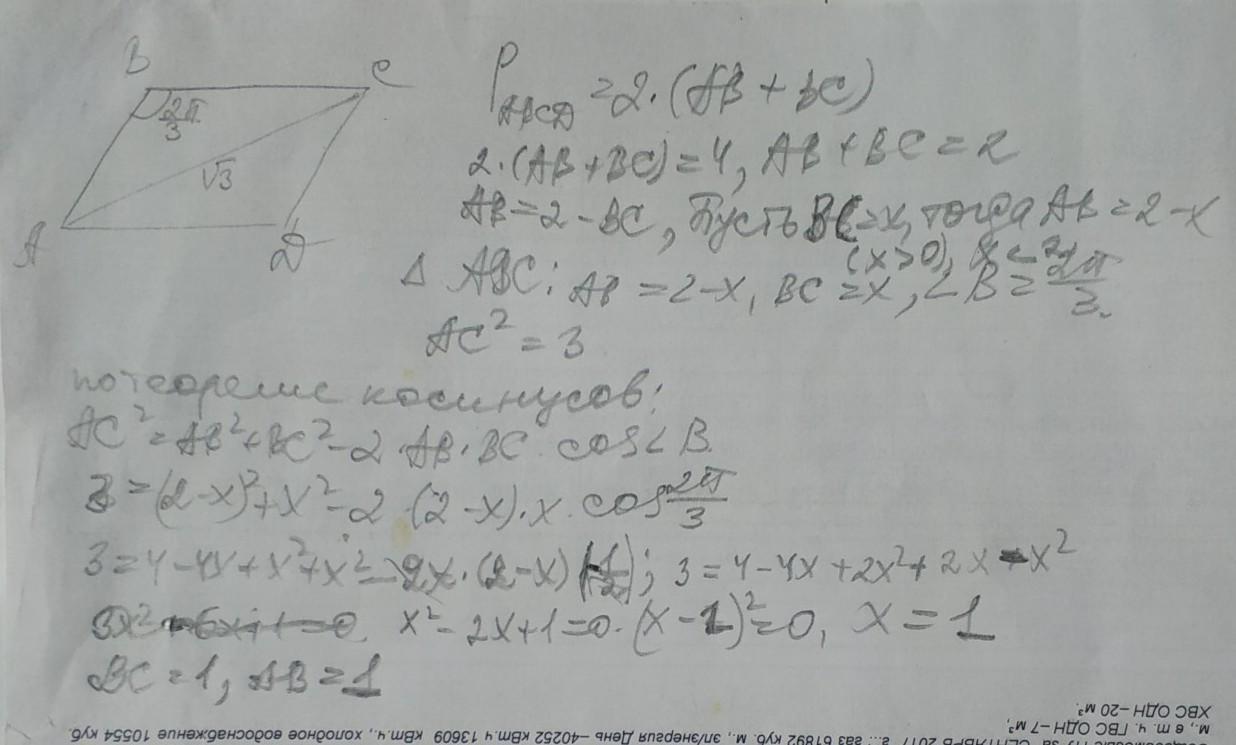 B
C
2π/3
√3
A
D
P ABCD = 2·(AB + BC)
2·(AB + BC) = 4, AB + BC = 2
AB = 2 - BC, Пусть BC = x, тогда AB = 2 - x
(x > 0), x < 2
Δ ABC: AB = 2 - x, BC = x, ∠B = 2π/3.
AC² = 3
по теореме косинусов:
AC² = AB² + BC² - 2·AB·BC·cos∠B.
3 = (2 - x)² + x² - 2·(2 - x)·x·cos 2π/3
3 = 4 - 4x + x² + x² - 2x·(2 - x)(-1/2); 3 = 4 - 4x + 2x² + 2x - x²
3x² - 6x + 1 = 0 x² - 2x + 1 = 0. (x - 1)² = 0, x = 1
BC = 1, AB = 1
ХВС ОДН -20 м³.
м., в т. ч. ГВС ОДН -7 м³,
газ 61892 куб. м., эл/энергия День -40252 кВт.ч 13609 кВт.ч., холодное водоснабжение 10554 куб.